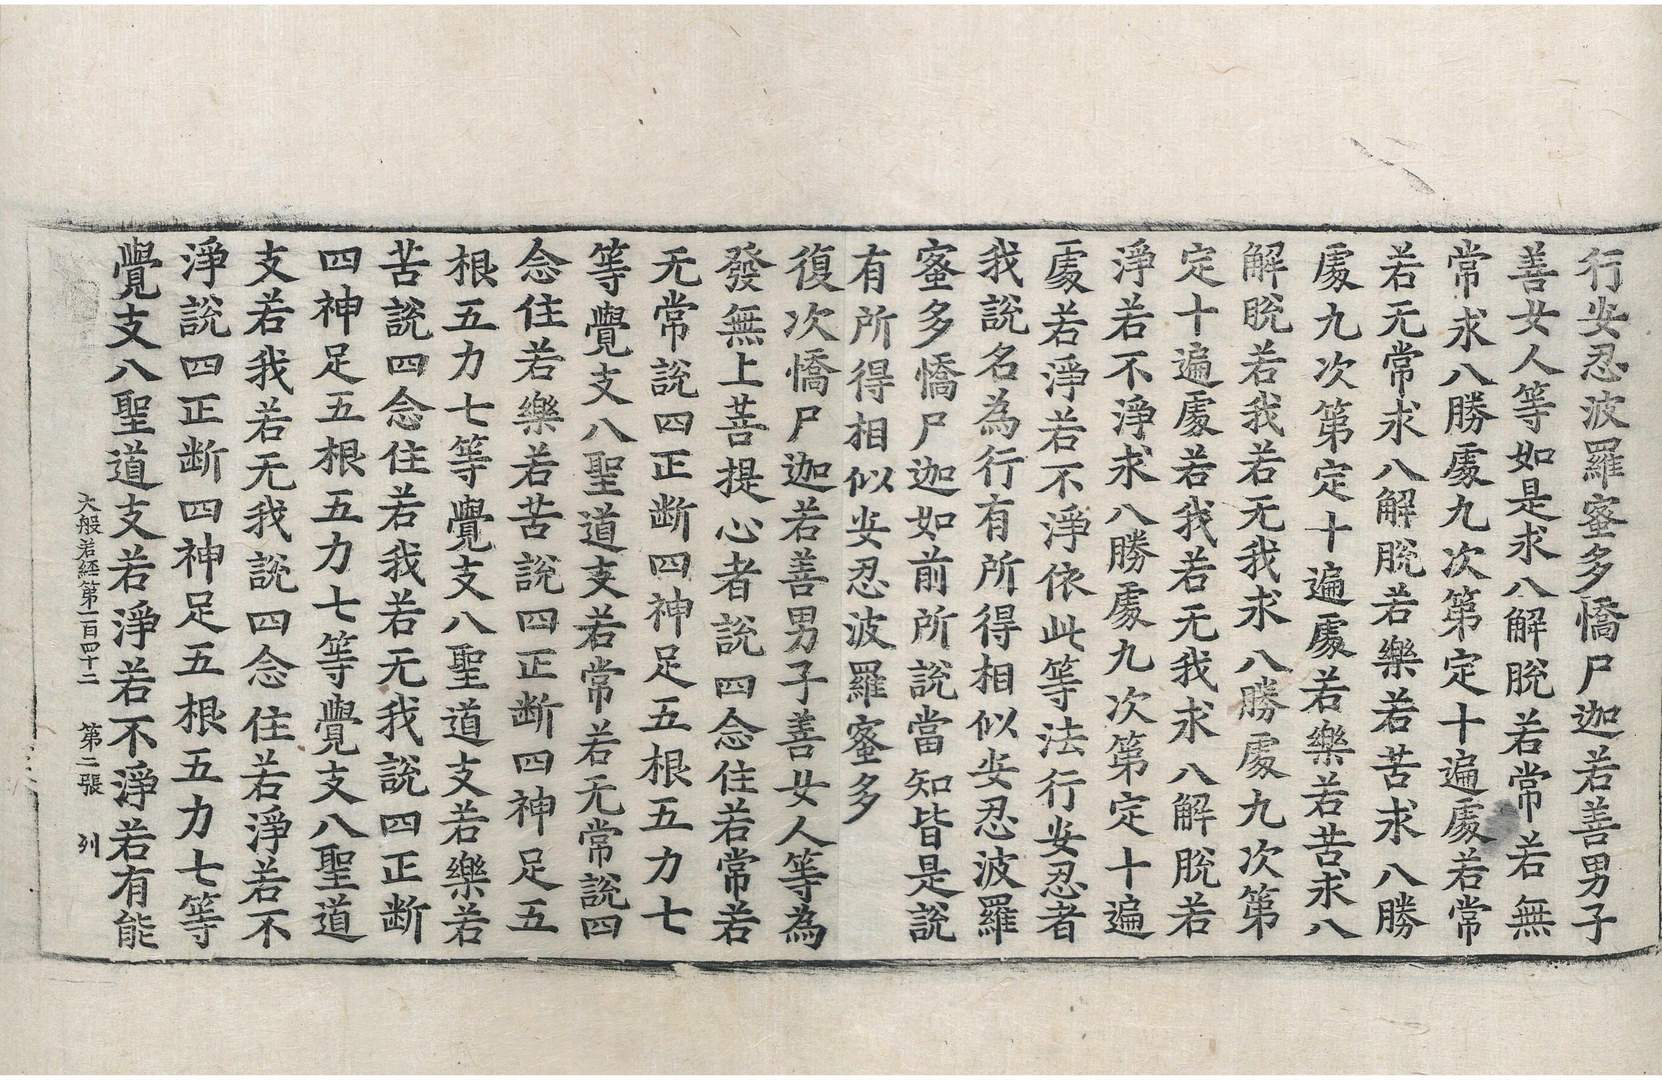 行安忍波羅蜜多憍尸迦若善男子
善女人等如是求八解脫若常若無
常求八勝處九次第定十遍處若常
若无常求八解脫若樂若苦求八勝
處九次第定十遍處若樂若苦求八
解脫若我若无我求八勝處九次第
定十遍處若我若无我求八解脫若
淨若不淨求八勝處九次第定十遍
處若淨若不淨依此等法行安忍者
我說名為行有所得相似安忍波羅
蜜多憍尸迦如前所說當知皆是說
有所得相似安忍波羅蜜多
復次憍尸迦若善男子善女人等為
發無上菩提心者說四念住若常若
无常說四正断四神足五根五力七
等覺支八聖道支若常若无常說四
念住若樂若苦說四正断四神足五
根五力七等覺支八聖道支若樂若
苦說四念住若我若无我說四正断
四神足五根五力七等覺支八聖道
支若我若无我說四念住若淨若不
淨說四正断四神足五根五力七等
覺支八聖道支若淨若不淨若有能
大般若経第一百四十二 第二張 列